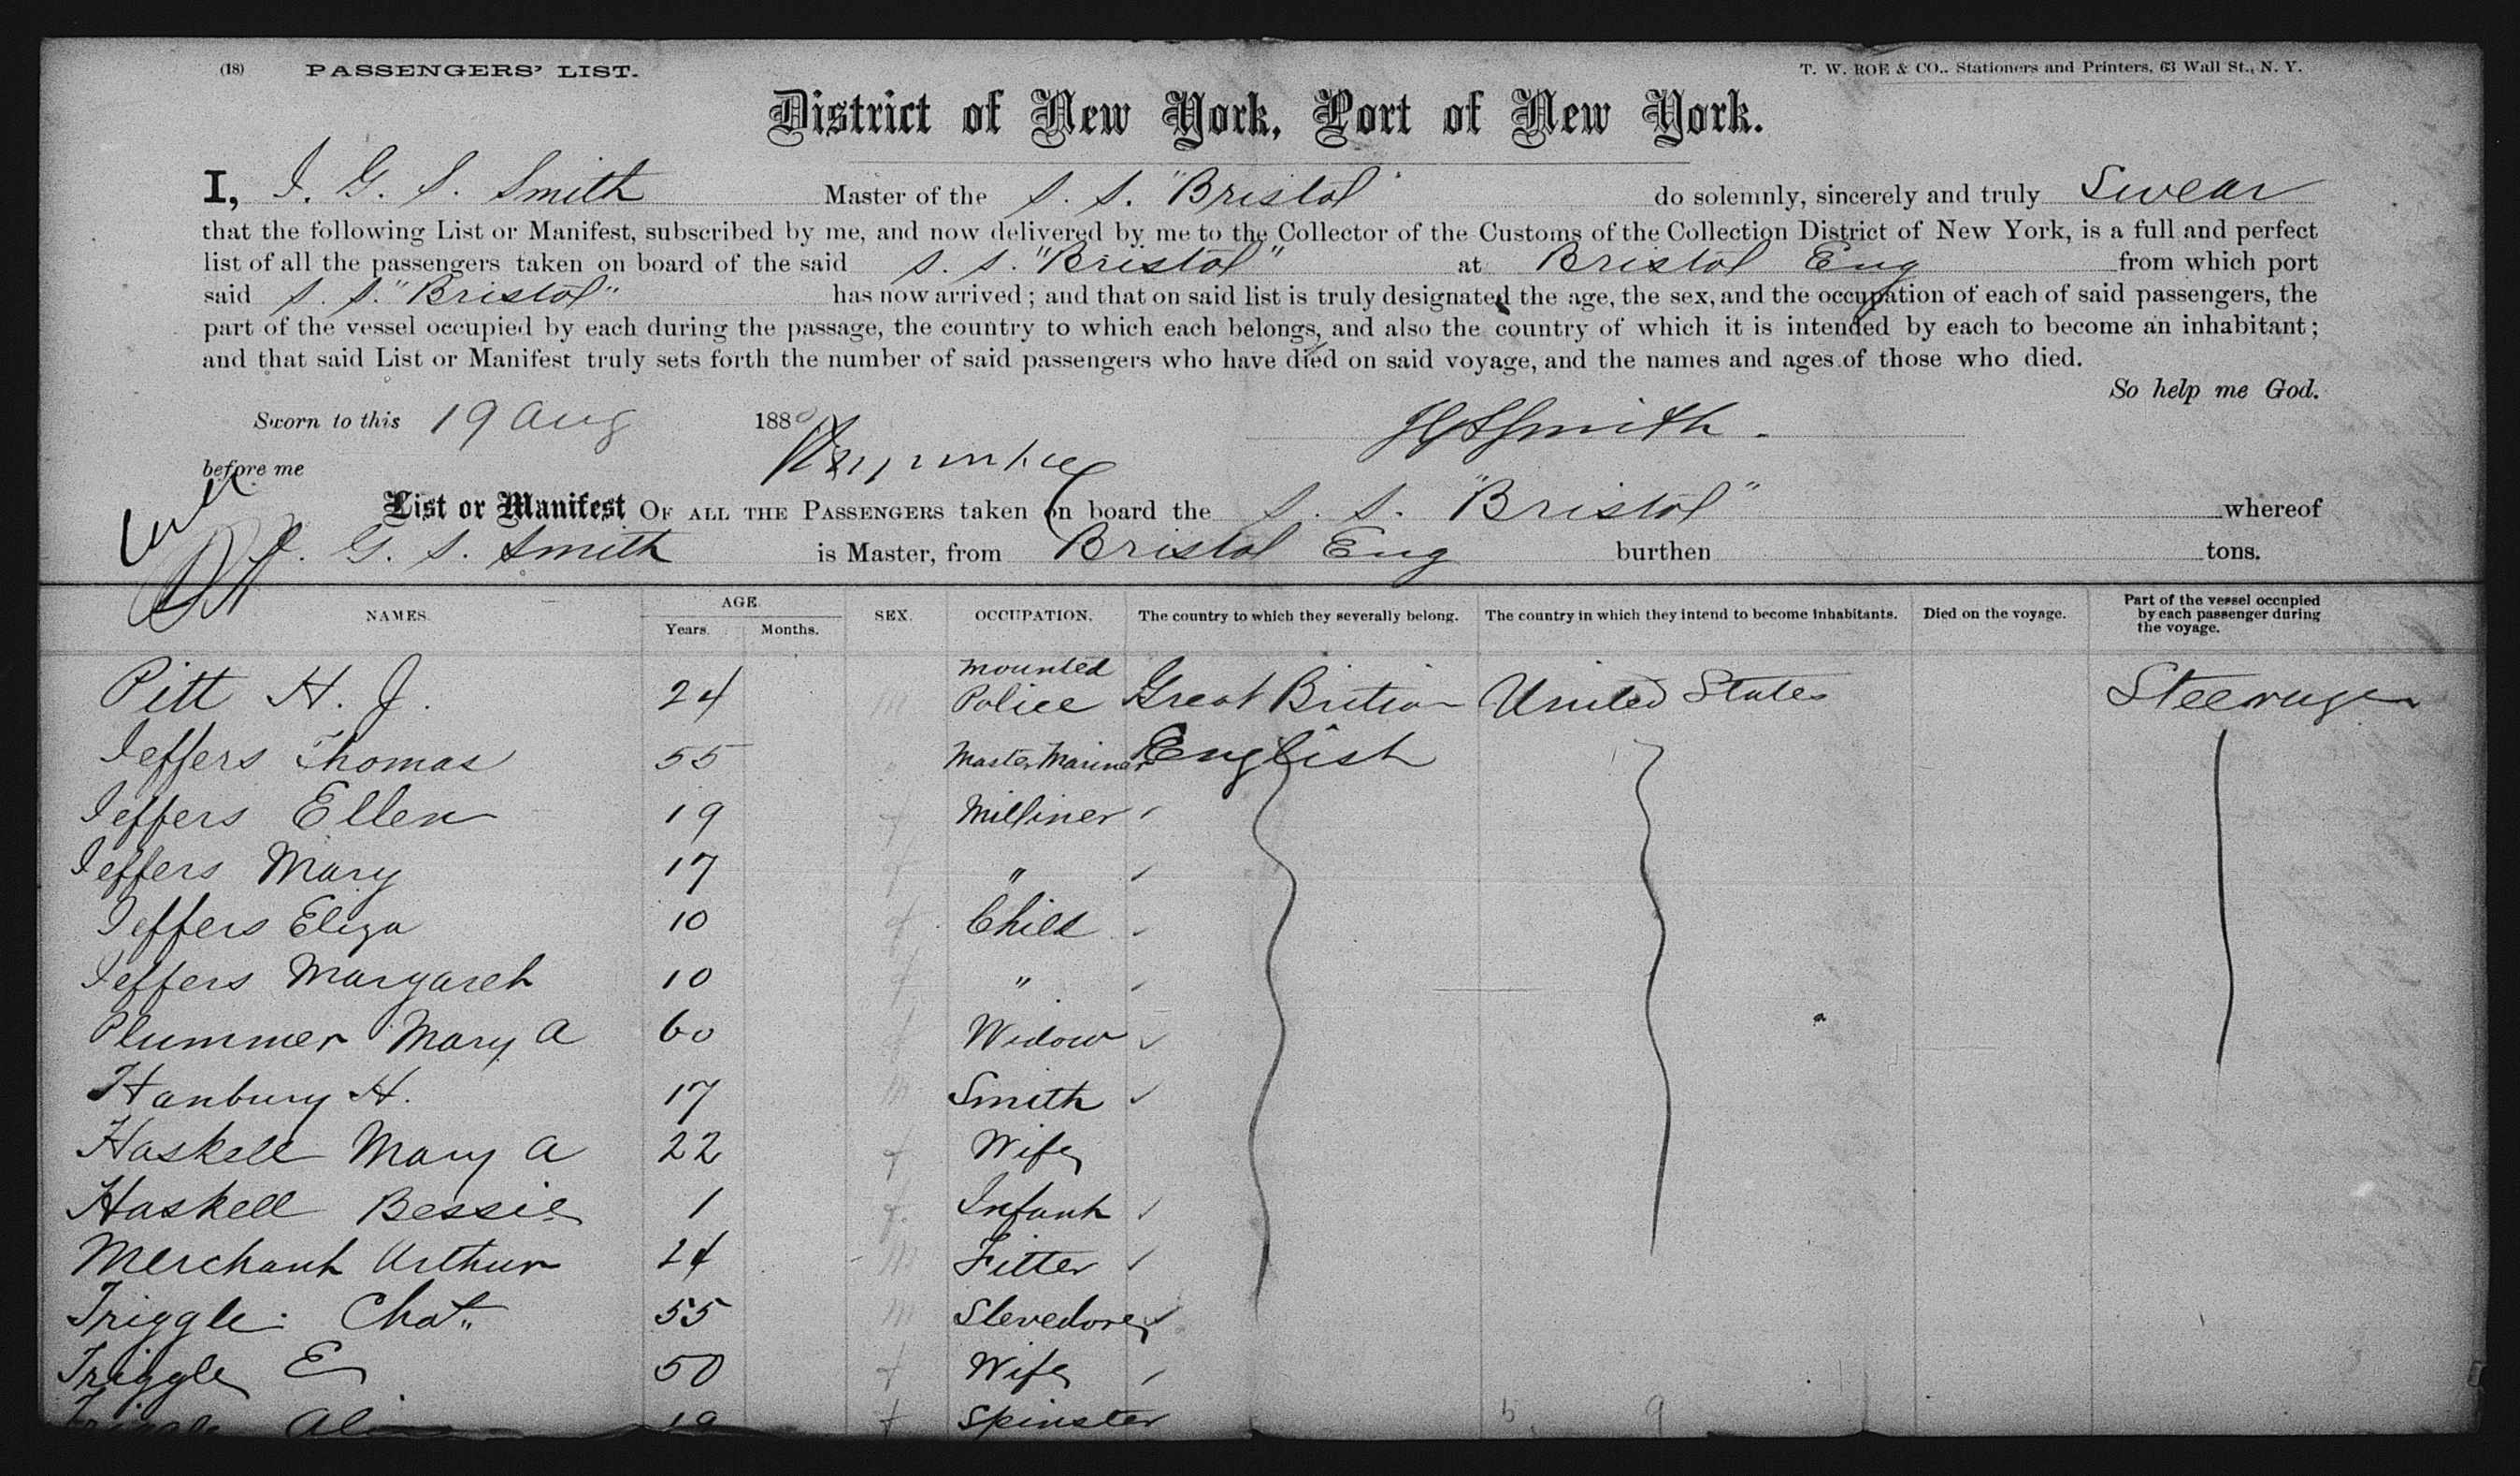 (18) PASSENGERS' LIST. T. W. ROE & CO., Stationers and Printers, 63 Wall St., N. Y.
District of New York, Port of New York.
I, J. G. S. Smith Master of the S. S. "Bristol" do solemnly, sincerely and truly Swear
that the following List or Manifest, subscribed by me, and now delivered by me to the Collector of the Customs of the Collection District of New York, is a full and perfect
list of all the passengers taken on board of the said S. S. "Bristol" at Bristol Eng from which port
said S. S. "Bristol" has now arrived; and that on said list is truly designated the age, the sex, and the occupation of each of said passengers, the
part of the vessel occupied by each during the passage, the country to which each belongs, and also the country of which it is intended by each to become an inhabitant;
and that said List or Manifest truly sets forth the number of said passengers who have died on said voyage, and the names and ages of those who died.
So help me God.
Sworn to this 19 Aug 1880 JGSSmith.
before me
List or Manifest OF ALL THE PASSENGERS taken on board the S. S. "Bristol" whereof
J. G. S. Smith is Master, from Bristol Eng burthen tons.
NAMES. AGE. Years. Months. SEX. OCCUPATION. The country to which they severally belong. The country in which they intend to become inhabitants. Died on the voyage. Part of the vessel occupied by each passenger during the voyage.
Pitt H. J. 24 m Mounted Police Great Britian United States Steerage
Jeffers Thomas 55 Master Mariner English
Jeffers Ellen 19 f Milliner
Jeffers Mary 17 f "
Jeffers Eliza 10 f Child
Jeffers Margaret 10 f "
Plummer Mary A 60 f Widow
Hanbury H. 17 m Smith
Haskell Mary A 22 f Wife
Haskell Bessie 1 f. Infant
Merchant Arthur 24 m Fitter
Triggle Chas. 55 m Stevedore
Triggle E 50 f Wife
Triggle 19 f Spinster